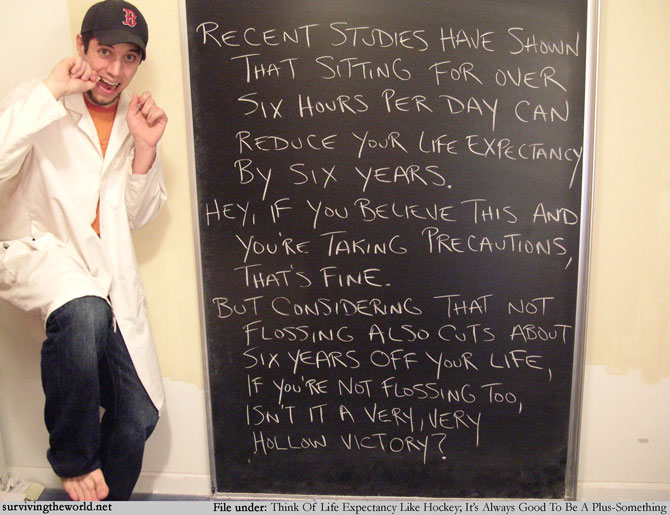 B
RECENT STUDIES HAVE SHOWN
THAT SITTING FOR OVER
SIX HOURS PER DAY CAN
REDUCE YOUR LIFE EXPECTANCY
BY SIX YEARS.
HEY, IF YOU BELIEVE THIS AND
YOU'RE TAKING PRECAUTIONS,
THAT'S FINE.
BUT CONSIDERING THAT NOT
FLOSSING ALSO CUTS ABOUT
SIX YEARS OFF YOUR LIFE,
IF YOU'RE NOT FLOSSING TOO,
ISN'T IT A VERY, VERY
HOLLOW VICTORY?
survivingtheworld.net File under: Think Of Life Expectancy Like Hockey; It's Always Good To Be A Plus-Something